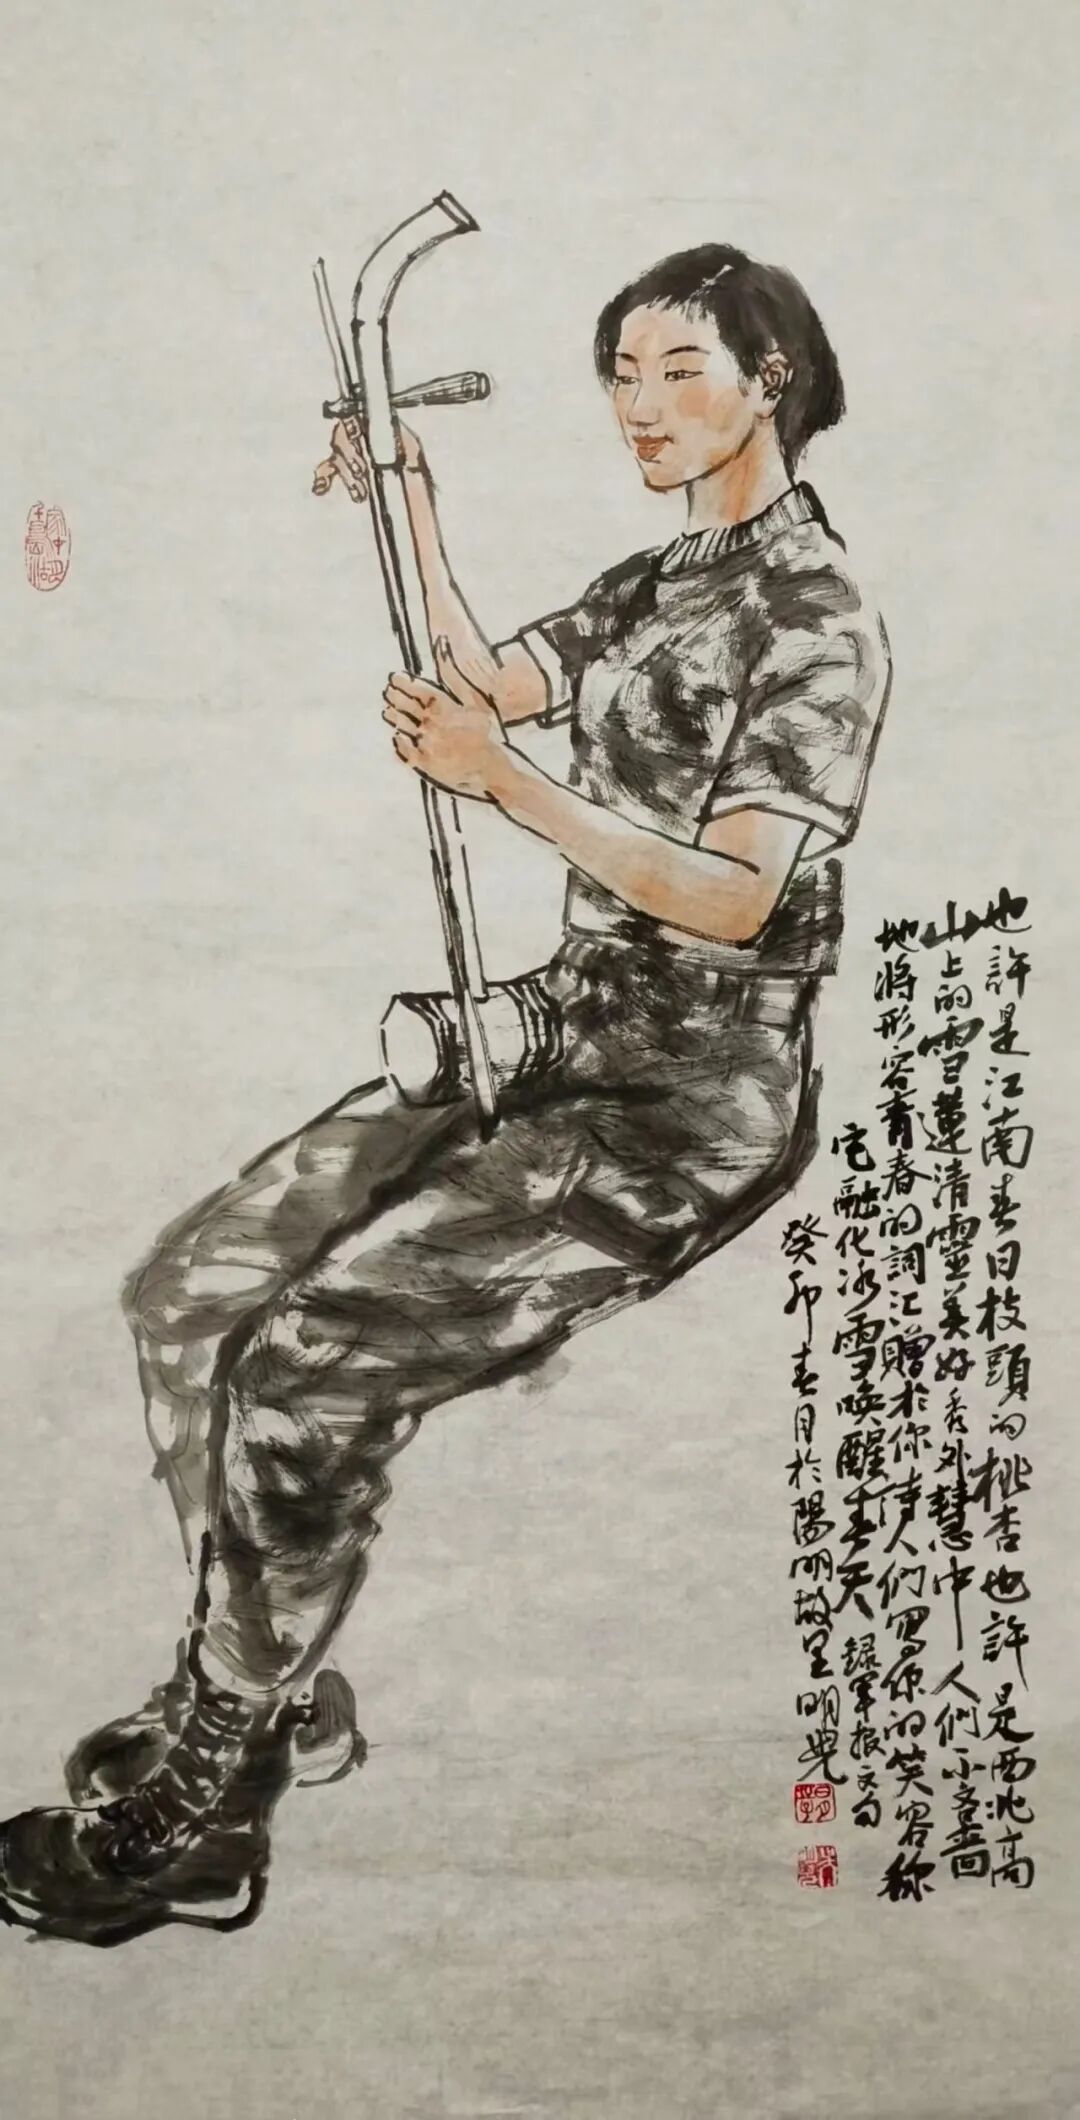 也許是江南春日枝頭的桃杏也許是西北高
山上的雪蓮清靈美好秀外慧中人們不吝嗇
地將形容青春的詞汇贈於你詩人們寫你的笑容称
它融化冰雪喚醒春天 録军报文句
癸卯春月於陽明故里明兒